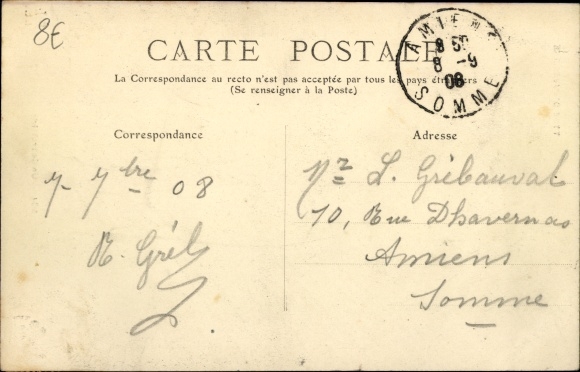 8€
CARTE POSTALE
La Correspondance au recto n'est pas acceptée par tous les pays étrangers
(Se renseigner à la Poste)
AMIENS
8 50
8 -9
08
SOMME
Correspondance
Adresse
7- 7bre 08
R. Gréb
Mr L. Grébauval
10, Rue Dhavernas
Amiens
Somme